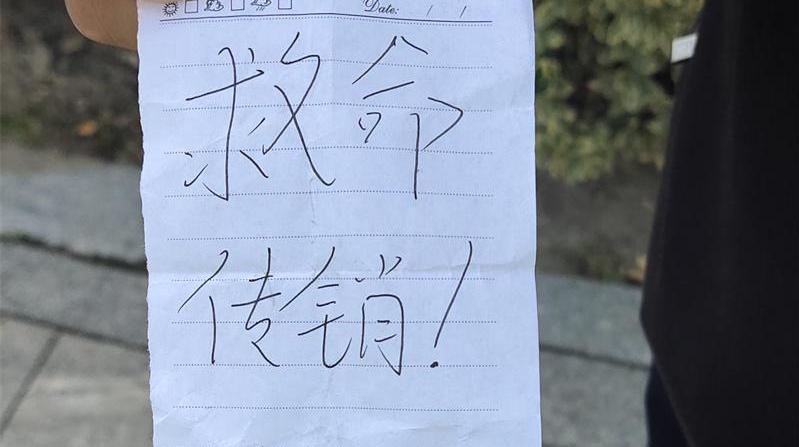 Date: / /
救命
传销!